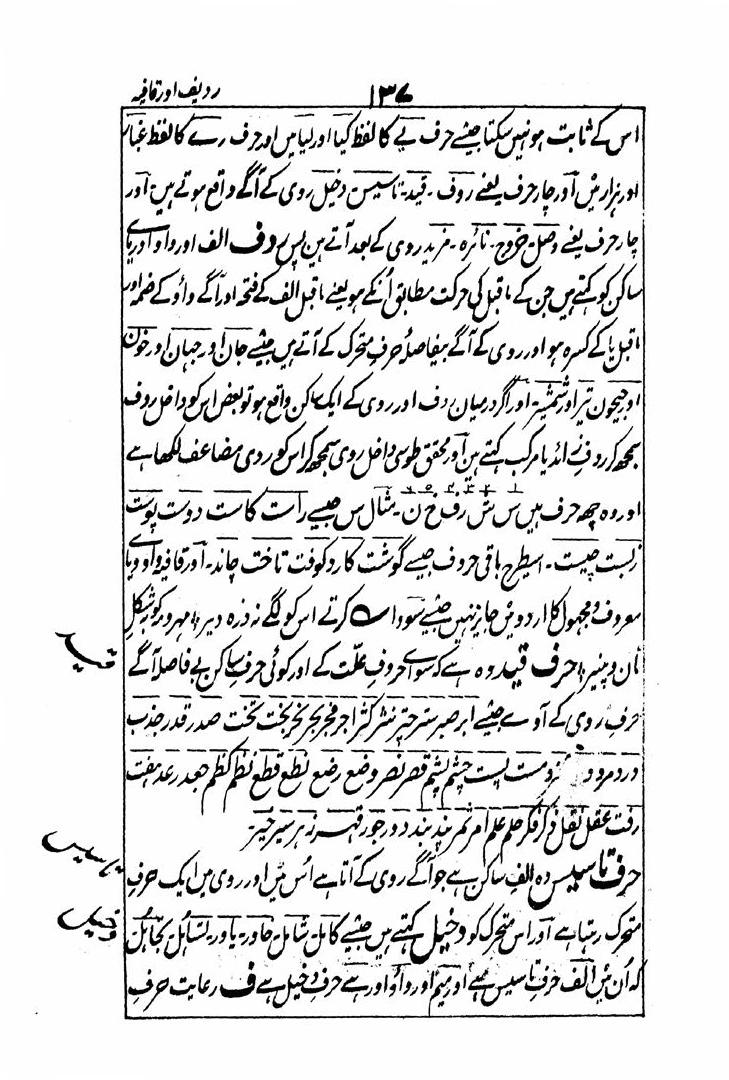 ۱۳۷
ردیف اور قافیہ
اس کے ثابت ہو نہیں سکتا جیسے حرف یے کا لفظ کیا اور لیا میں اور حرف رے کا لفظ غبار
اور ہزار میں اور چار حرف یعنے ردف ۔ قید ۔ تاسیس دخیل روی کے آگے واقع ہوتے ہیں اور
چار حرف یعنے وصل ۔ خروج ۔ نائرہ ۔ مزید روی کے بعد آتے ہین پس ردف الف اور واو اور یای
ساکن کو کہتے ہیں جن کے ماقبل کی حرکت مطابق اُنکے ہو یعنے ماقبل الف کے فتحہ اور آگے واؤ کے ضمہ اور
ماقبل یا کے کسرہ ہو اور روی کے آگے بیفاصلۂ حرفِ متحرک کے آتے ہیں جیسے جان اور جہان اور خون
اور جیحون تیر اور شمشیر اور اگر درمیان ردف اور روی کے ایک ساکن واقع ہو تو بعض اس کو داخل ردف
سمجھ کر ردفِ زائد یا مرکب کہتے ہین اور محقق طوسی داخل روی سمجھ کر اس کو روی مضاعف لکھا ہے
اور وہ چھ حرف ہیں س ش ر ف خ ن ۔ مثال س جیسے راست کاست دوست پوست
زیست چیست ۔ اسیطرح باقی حروف جیسے گوشت کارد کوفت تاخت چاند ۔ اور قافیہ واو و یای
معروف و مجہول کا اردو میں جایز نہیں جیسے سودا کرتے اس کو لگے نہ ذرہ دیر ؛ مہر ور کو بشکلِ
نان و پنیر ؛ حرف قید وہ ہے کہ سوای حروفِ علّت کے اور کوئی حرفِ ساکن بے فاصلہ آگے
قید
حرفِ روی کے آوے جیسے ابر صبر ستر چتر نشر کثر اجر فجر بحر نحر بخت تخت صدر قدر جذب
درد مرد مست پست چشم پشم قصر نصر وضع رضع نطع قطع نظم کظم بعد رعد ہفت
رفت عقل نقل ذکر فکر حلم علم امر ثمر پند بند دور جور قہر نہر سیر خیر ۔
حرف تاسیس وہ الفِ ساکن ہے جو آگے روی کے آتا ہے اُس میں اور روی میں ایک حرفِ
تاسیس
متحرک رہتا ہے اور اس متحرک کو دخیل کہتے ہیں جیسے کامل ۔ شامل ۔ خاور ۔ یاور ۔ تساہُل تجاہُل
دخیل
کہ اُن میں الف حرفِ تاسیس ہے اور میم اور واؤ اور ہے حرفِ دخیل ہے ف رعایت حرفِ